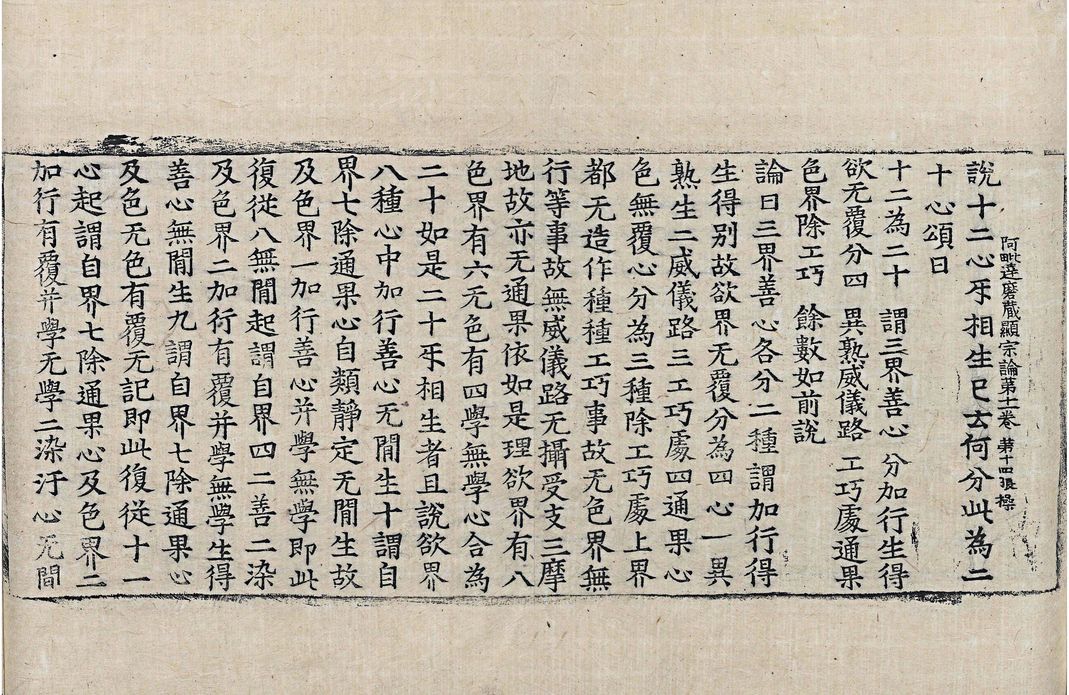 阿毗達磨藏顯宗論第十一卷 第十四張 操
說十二心互相生已云何分此為二
十心頌曰
十二為二十 謂三界善心 分加行生得
欲无覆分四 異熟威儀路 工巧處通果
色界除工巧 餘數如前說
論曰三界善心各分二種謂加行得
生得別故欲界无覆分為四心一異
熟生二威儀路三工巧處四通果心
色無覆心分為三種除工巧處上界
都无造作種種工巧事故无色界無
行等事故無威儀路无攝受支三摩
地故亦无通果依如是理欲界有八
色界有六无色有四學無學心合為
二十如是二十互相生者且說欲界
八種心中加行善心无閒生十謂自
界七除通果心自類靜定无閒生故
及色界一加行善心并學無學即此
復從八無閒起謂自界四二善二染
及色界二加行有覆并學無學生得
善心無閒生九謂自界七除通果心
及色无色有覆无記即此復從十一
心起謂自界七除通果心及色界二
加行有覆并學无學二染汙心无閒